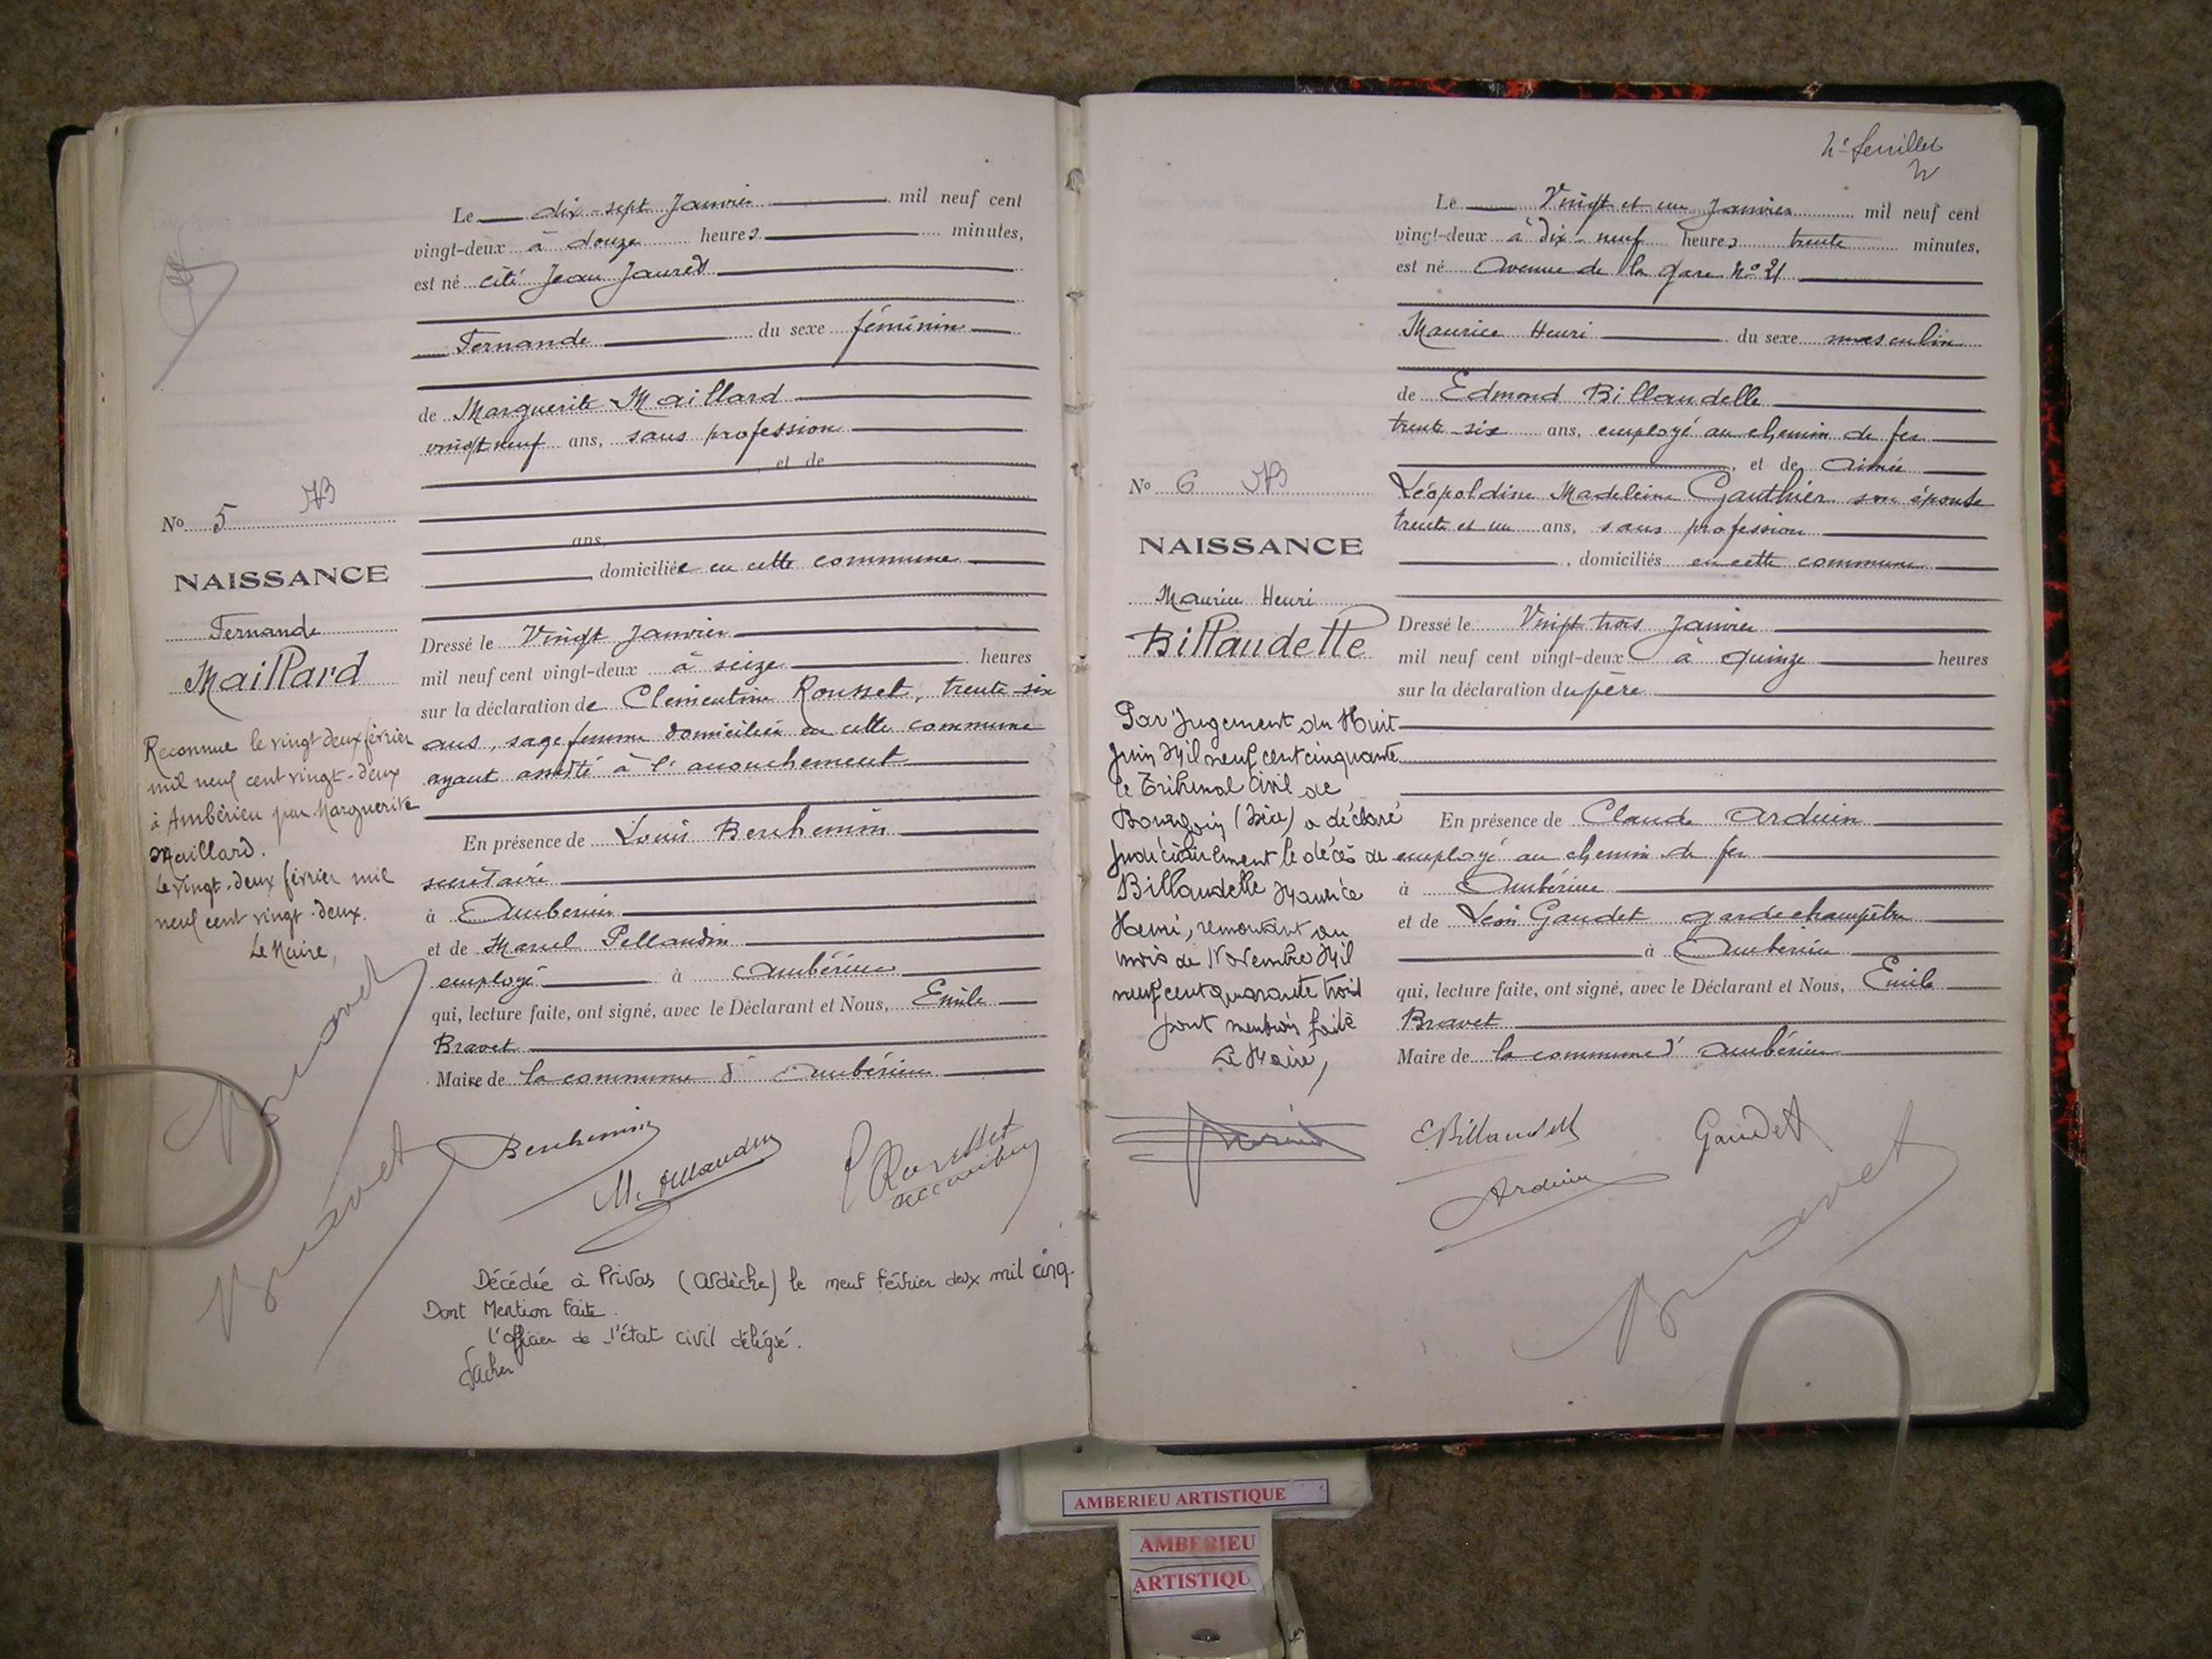 Le dix-sept Janvier mil neuf cent
vingt-deux à douze heures minutes,
est né cité Jean Jaurès
Fernande du sexe féminin
de Marguerite Maillard
vingt neuf ans, sans profession
, et de
ans,
domiciliée en cette commune
Dressé le Vingt Janvier
mil neuf cent vingt-deux à seize heures
sur la déclaration de Clémentine Rousset, trente-six
ans, sage femme domiciliée en cette commune
ayant assisté à l'accouchement
En présence de Louis Berthemin
secrétaire
à Ambérieu
et de Marcel Pellaudin
employé à Ambérieu
qui, lecture faite, ont signé, avec le Déclarant et Nous, Emile
Bravet
Maire de la commune d'Ambérieu
No 5
NAISSANCE
Fernande
Maillard
Reconnue le vingt deux février
mil neuf cent vingt-deux
à Ambérieu par Marguerite
Maillard.
Le vingt-deux février mil
neuf cent vingt-deux.
Le Maire,
Bravet
Bravet
Décédée à Privas (Ardèche) le neuf février deux mil cinq.
Dont Mention faite.
l'officier de l'état civil délégué.
2e feuillet
Le Vingt et un Janvier mil neuf cent
vingt-deux à dix-neuf heures trente minutes,
est né Avenue de la gare No 21
Maurice Henri du sexe masculin
de Edmond Billaudelle
trente-six ans, employé au chemin de fer
, et de Aimée
Léopoldine Madeleine Gauthier son épouse
trente et un ans, sans profession
, domiciliés en cette commune
Dressé le Vingt trois Janvier
mil neuf cent vingt-deux à quinze heures
sur la déclaration du père
En présence de Claude Arduin
employé au chemin de fer
à Ambérieu
et de Léon Gaudet garde champêtre
à Ambérieu
qui, lecture faite, ont signé, avec le Déclarant et Nous, Emile
Bravet
Maire de la commune d'Ambérieu
No 6
NAISSANCE
Maurice Henri
Billaudelle
Par Jugement du Huit
Juin Mil neuf cent cinquante
le Tribunal Civil de
Bourgoin (Isère) a déclaré
judiciairement le décès de
Billaudelle Maurice
Henri, remontant au
mois de Novembre Mil
neuf cent quarante trois
dont mention faite
Le Maire,
E Billaudelle
Gaudet
Arduin
Bravet
AMBERIEU ARTISTIQUE
AMBERIEU
ARTISTIQU